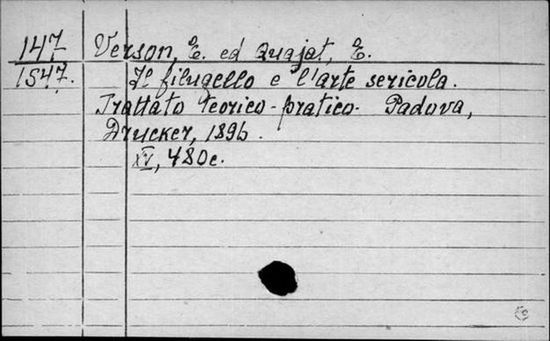 147 Verson, E. ed Quajat, E.
1547. Il filugello e l'arte sericola.
Trattato teorico-pratico. Padova,
Drucker, 1896.
XV, 480c.